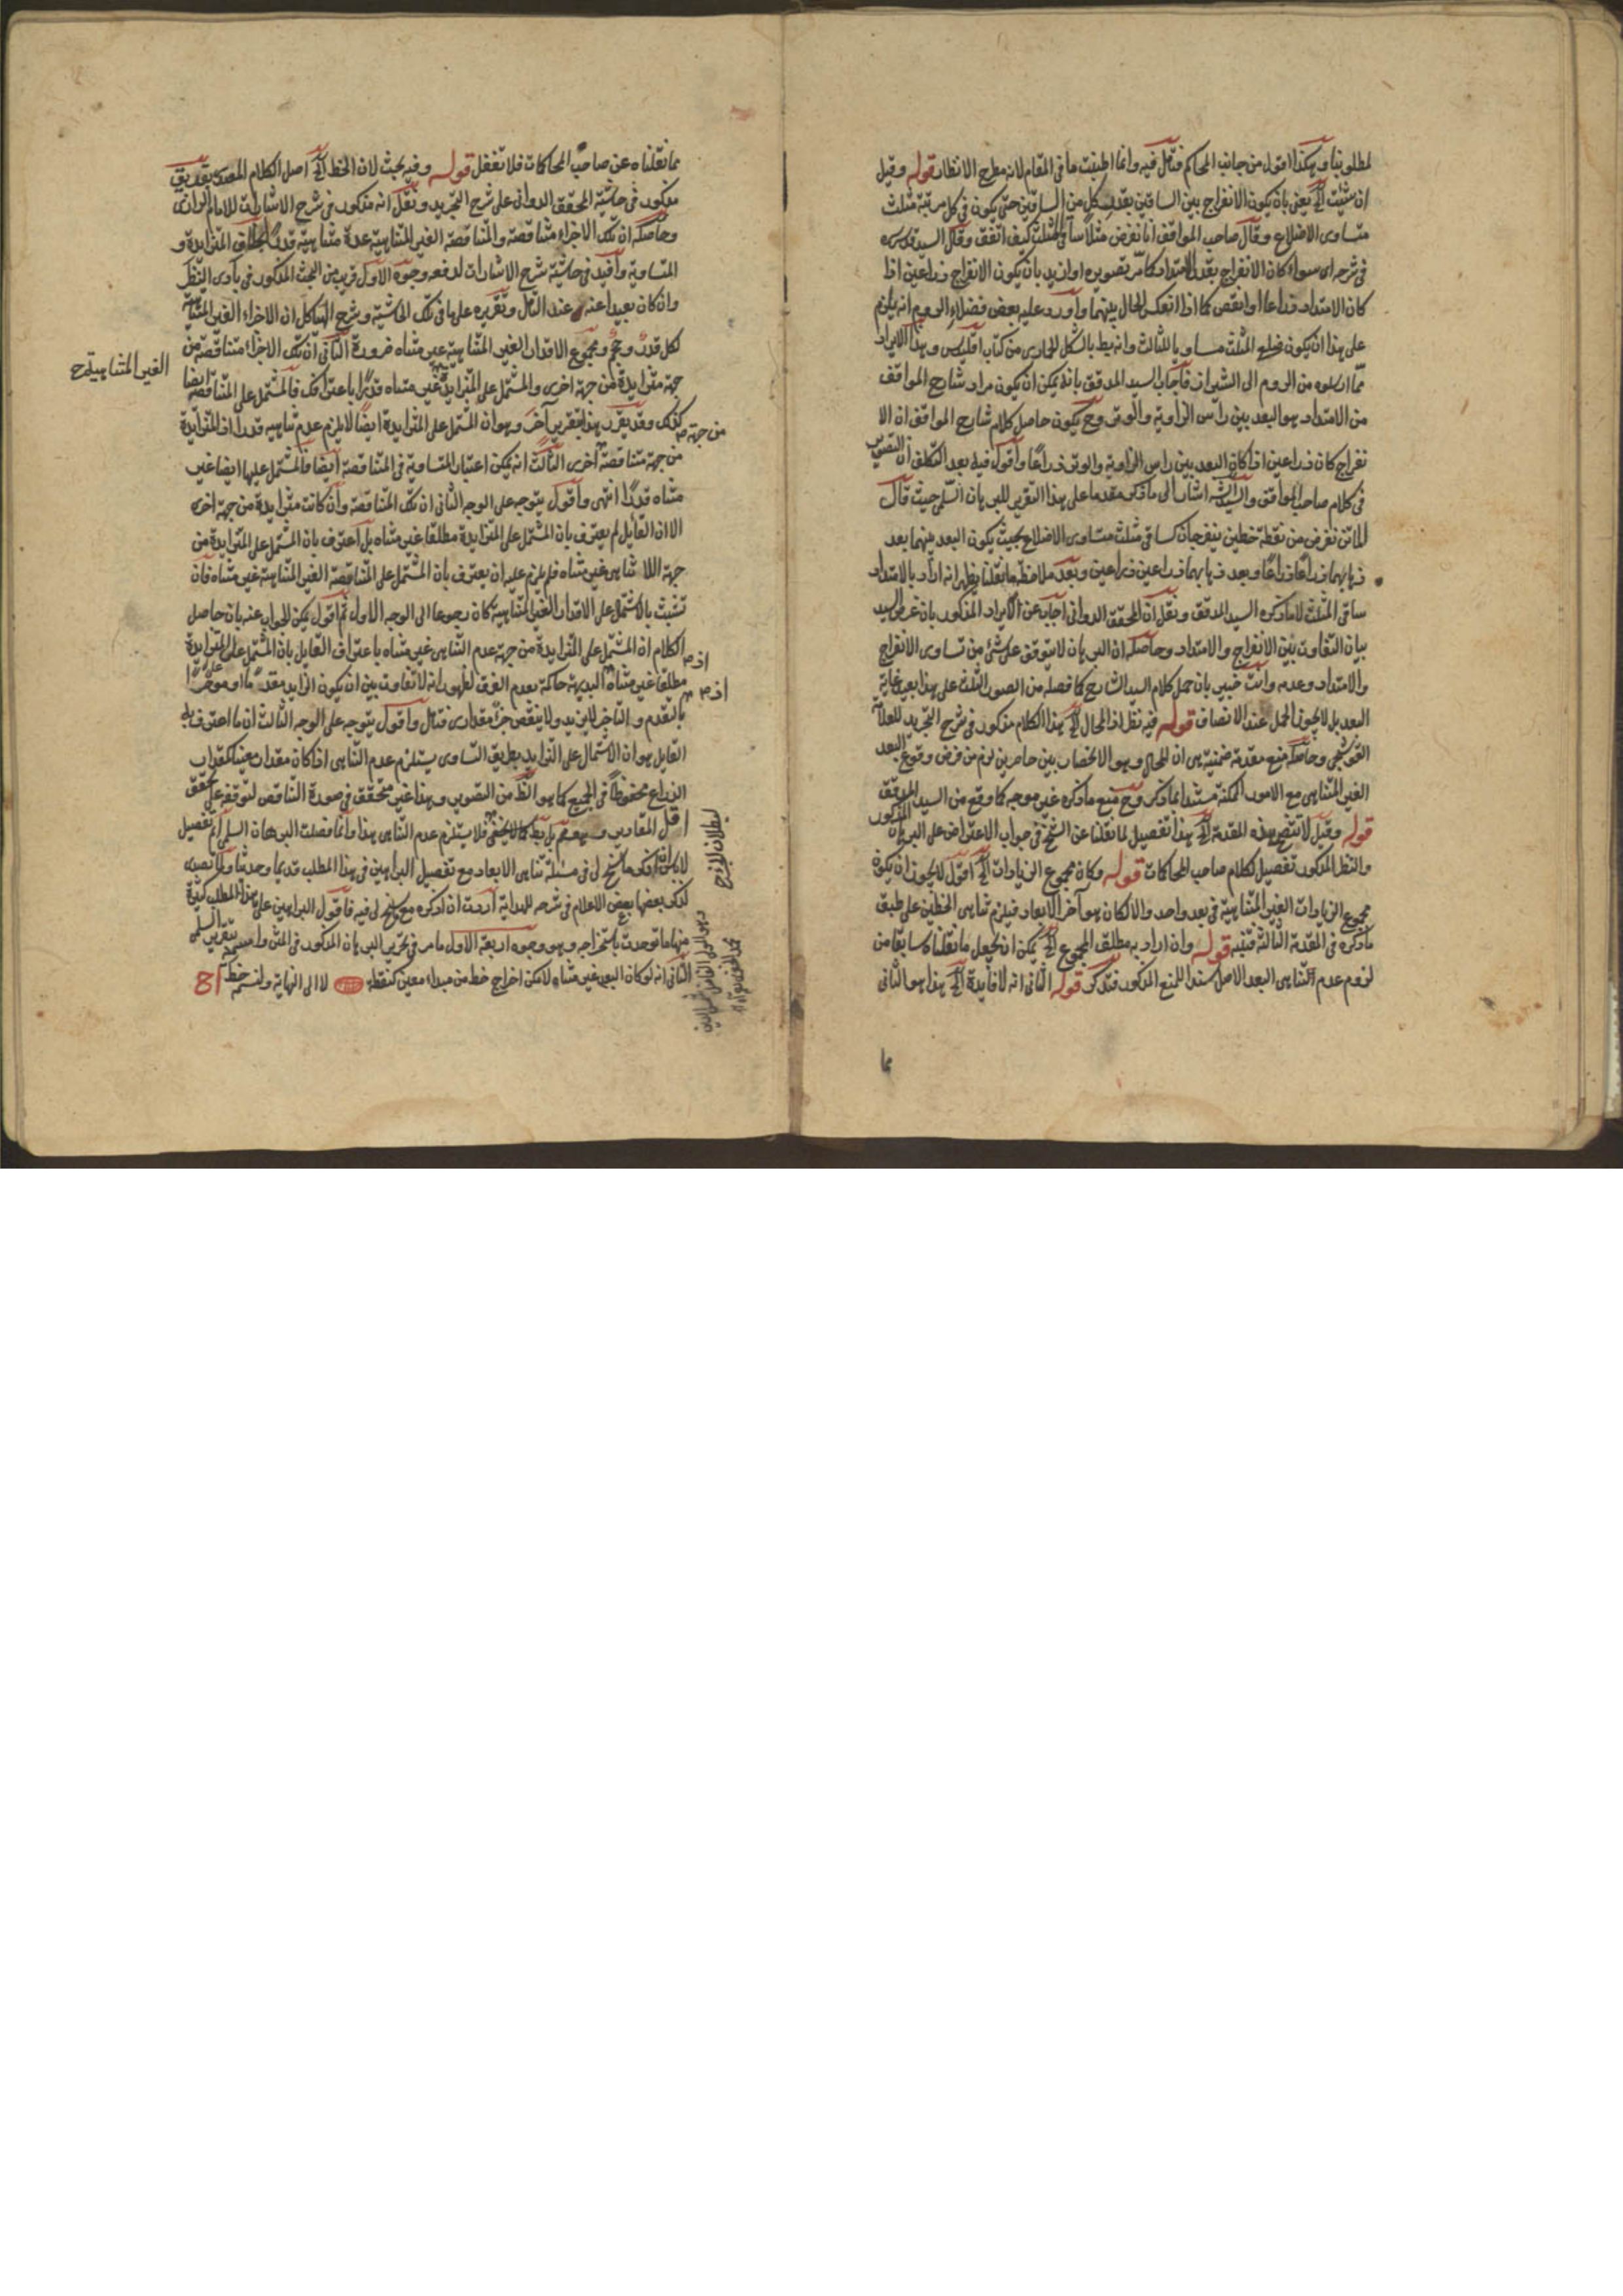 لمطلوبنا وهكذا اقول من جانب المحاكم فتأمل فيه وانما اطنبت ما في المقام لانه مطرح الانظار قوله وقيل
ان شئت الخ يعني بان يكون الانفراج بين الساقين بقدر كل من الساقين حتى يكون في كل مرتبة مثلث
متساوى الاضلاع وقال صاحب المواقف انا نفرض مثلثا ساقى المثلث كيف اتفق وقال السيد قدس سره
في شرحه اى سواء كان الانفراج بقدر الامتداد كما مر تصويره او ازيد بان يكون الانفراج ذراعين اذا
كان الامتداد ذراعا او انقص كما اذا انعكس الحال بينهما واورد عليه بعض فضلاء الروم انه يلزم
على هذا ان يكون ضلع المثلث مساويا للثالث وانه يط بالشكل الحادى من كتاب اقليدس وهذا الايراد
مما ارسلوه من الروم الى الشيراز فاجاب السيد المدقق بانه يمكن ان يكون مراد شارح المواقف
من الامتداد هو البعد بين رأس الزاوية والوتر وح يكون حاصل كلام شارح المواقف ان الا
نفراج كان ذراعين اذا كان البعد بين راس الزاوية والوتر ذراعا واقول فيه بعد التكلف ان التصوير
في كلام صاحب المواقف والسيد اشار الى ما ذكر مقدما على هذا التقرير للبرهان السلمى حيث قال
الماتن نفرض من نقطة خطين ينفرجان كساقى مثلث متساوى الاضلاع بحيث يكون البعد بينهما بعد
ذهابهما ذراعا ذراعا وبعد ذهابهما ذراعين ذراعين وبعد ملاحظة ما نقلنا يظهر انه اراد بالامتداد
ساقى المثلث لا ما ذكره السيد المدقق ونقل ان المحقق الدوانى اجاب عن الايراد المذكور بان غرض السيد
بيان التفاوت بين الانفراج والامتداد وحاصله ان البرهان لا يتوقف على شئ من تساوى الانفراج
والامتداد وعدمه وانت خبير بان حمل كلام السيد الشارح كما فصله من الصور الثلث على هذا بعيد غاية
البعد بل لا يجوز الحمل عند الانصاف قوله فيه نظر اذ المحال الخ هذا الكلام مذكور في شرح التجريد للعلامة
القوشجى وحاصله منع مقدمة ضمنية هى ان المحال وهو الانحصار بين حاصرين لزم من فرض وقوع البعد
الغير المتناهى مع الامور الممكنة مستندا بما ذكر وح منع ما ذكره غير موجه كما وقع من السيد المدقق
قوله وقيل لا تنتقض هذه المقدمة الخ هذا تفصيل لما نقلنا عن الشيخ في جواب الاعتراض على البرهان المذكور
والنظر المذكور تفصيل لكلام صاحب المحاكات قوله وكان مجموع الزيادات الخ اقول لا يجوز ان يكون
مجموع الزيادات الغير المتناهية في بعد واحد والا لكان هو آخر الابعاد فيلزم تناهى الخطين على طبق
ما ذكره في المقدمة الثالثة فتنبه قوله وان اراد به مطلق المجموع الخ يمكن ان نجعل ما نقلناه سابقا من
لزوم عدم التناهى البعد الاصل سندا للمنع المذكور فتذكر قوله الثانى انه لا فايدة الخ هذا هو الثانى
مما
مما نقلناه عن صاحب المحاكات فلا تغفل قوله وفيه بحث لان الخط الخ اصل الكلام
مذكور في حاشية المحقق الدوانى على شرح التجريد ونقل انه مذكور في شرح الاشارات للامام الرازى
وحاصله ان تلك الاجزاء متناقصة والمتناقصة الغير المتناهية عدة متناهية قدرا بخلاف المتزايدة و
المتساوية وافيد في حاشية شرح الاشارات لدفعه وجوه الاول قريب من البحث المذكور في بادى النظر
وان كان بعيدا عنه عند التأمل وتقريره على ما في تلك الحاشية وشرح الهياكل ان الاجزاء الغير المتناهية
لكل قدر وحجم ومجموع الاقدار الغير المتناهية غير متناه ضرورة الثانى ان تلك الاجزاء متناقصة من
الغير المتناهية ح
جهة متزايدة من جهة اخرى والمشتمل على المتزايدة غير متناه قدرا باعترافك فالمشتمل على المتناقصة ايضا
كذلك وقد يقرر هذا بتقرير آخر وهو ان المشتمل على المتزايدة ايضا لا يلزم عدم تناهيه قدرا اذ المتزايدة
من جهة
من جهة متناقصة اخرى الثالث انه يمكن اعتبار المتساوية في المتناقصة ايضا فالمشتمل عليها ايضا غير
متناه قدرا انتهى واقول يتوجه على الوجه الثانى ان تلك المتناقصة وان كانت متزايدة من جهة اخرى
الا ان القايل لم يعترف بان المشتمل على المتزايدة مطلقا غير متناه بل اعترف بان المشتمل على المتزايدة من
جهة اللا تناهى غير متناه فلم يلزم عليه ان يعترف بان المشتمل على المتناقصة الغير المتناهية غير متناه فان
تشبث بالاشتمال على الاقدار الغير المتناهية كان رجوعا الى الوجه الاول ثم اقول يمكن الجواب عنه بان حاصل
الكلام ان المشتمل على المتزايدة من جهة عدم التناهى غير متناه باعتراف القايل بان المشتمل على المتزايدة
مطلقا غير متناه البديهة حاكمة بعدم الفرق لظهور انه لا تفاوت بين ان يكون الزايد مقدما او مؤخرا
بالتقدم والتاخر لا يزيد ولا ينقص جزء مقدارى فتأمل واقول يتوجه على الوجه الثالث ان ما اعترف به
القايل هو ان الاشتمال على التزايد بطريق التساوى يستلزم عدم التناهى اذا كان مقدار معينا كمقدار
الذراع محفوظا في الجميع كما هو الظ من التصوير وهذا غير متحقق في صورة التناقص لتوقفه على تحقق
اقل المقادير كما لا يخفى فلا يستلزم عدم التناهى هذا وانما فصلت البرهان السلمى اتم تفصيل
لى في مسئلة تناهى الابعاد مع تفصيل البراهين في هذا المطلب قديما وحديثا
كذلك بعضها بعض الاعلام في شرحه للهداية اردت ان اذكره مع ما سنح لى فيه فاقول البراهين على هذا المطلب كثيرة
منها ما توحدت باستخراجه وهو وجوه اربعة الاول ما مر في تحرير البرهان المذكور في المتن
الثانى انه لو كان البعد غير متناه لامكن اخراج خط من مبداء معين كنقطة لا الى النهاية ولنسمه خط اح